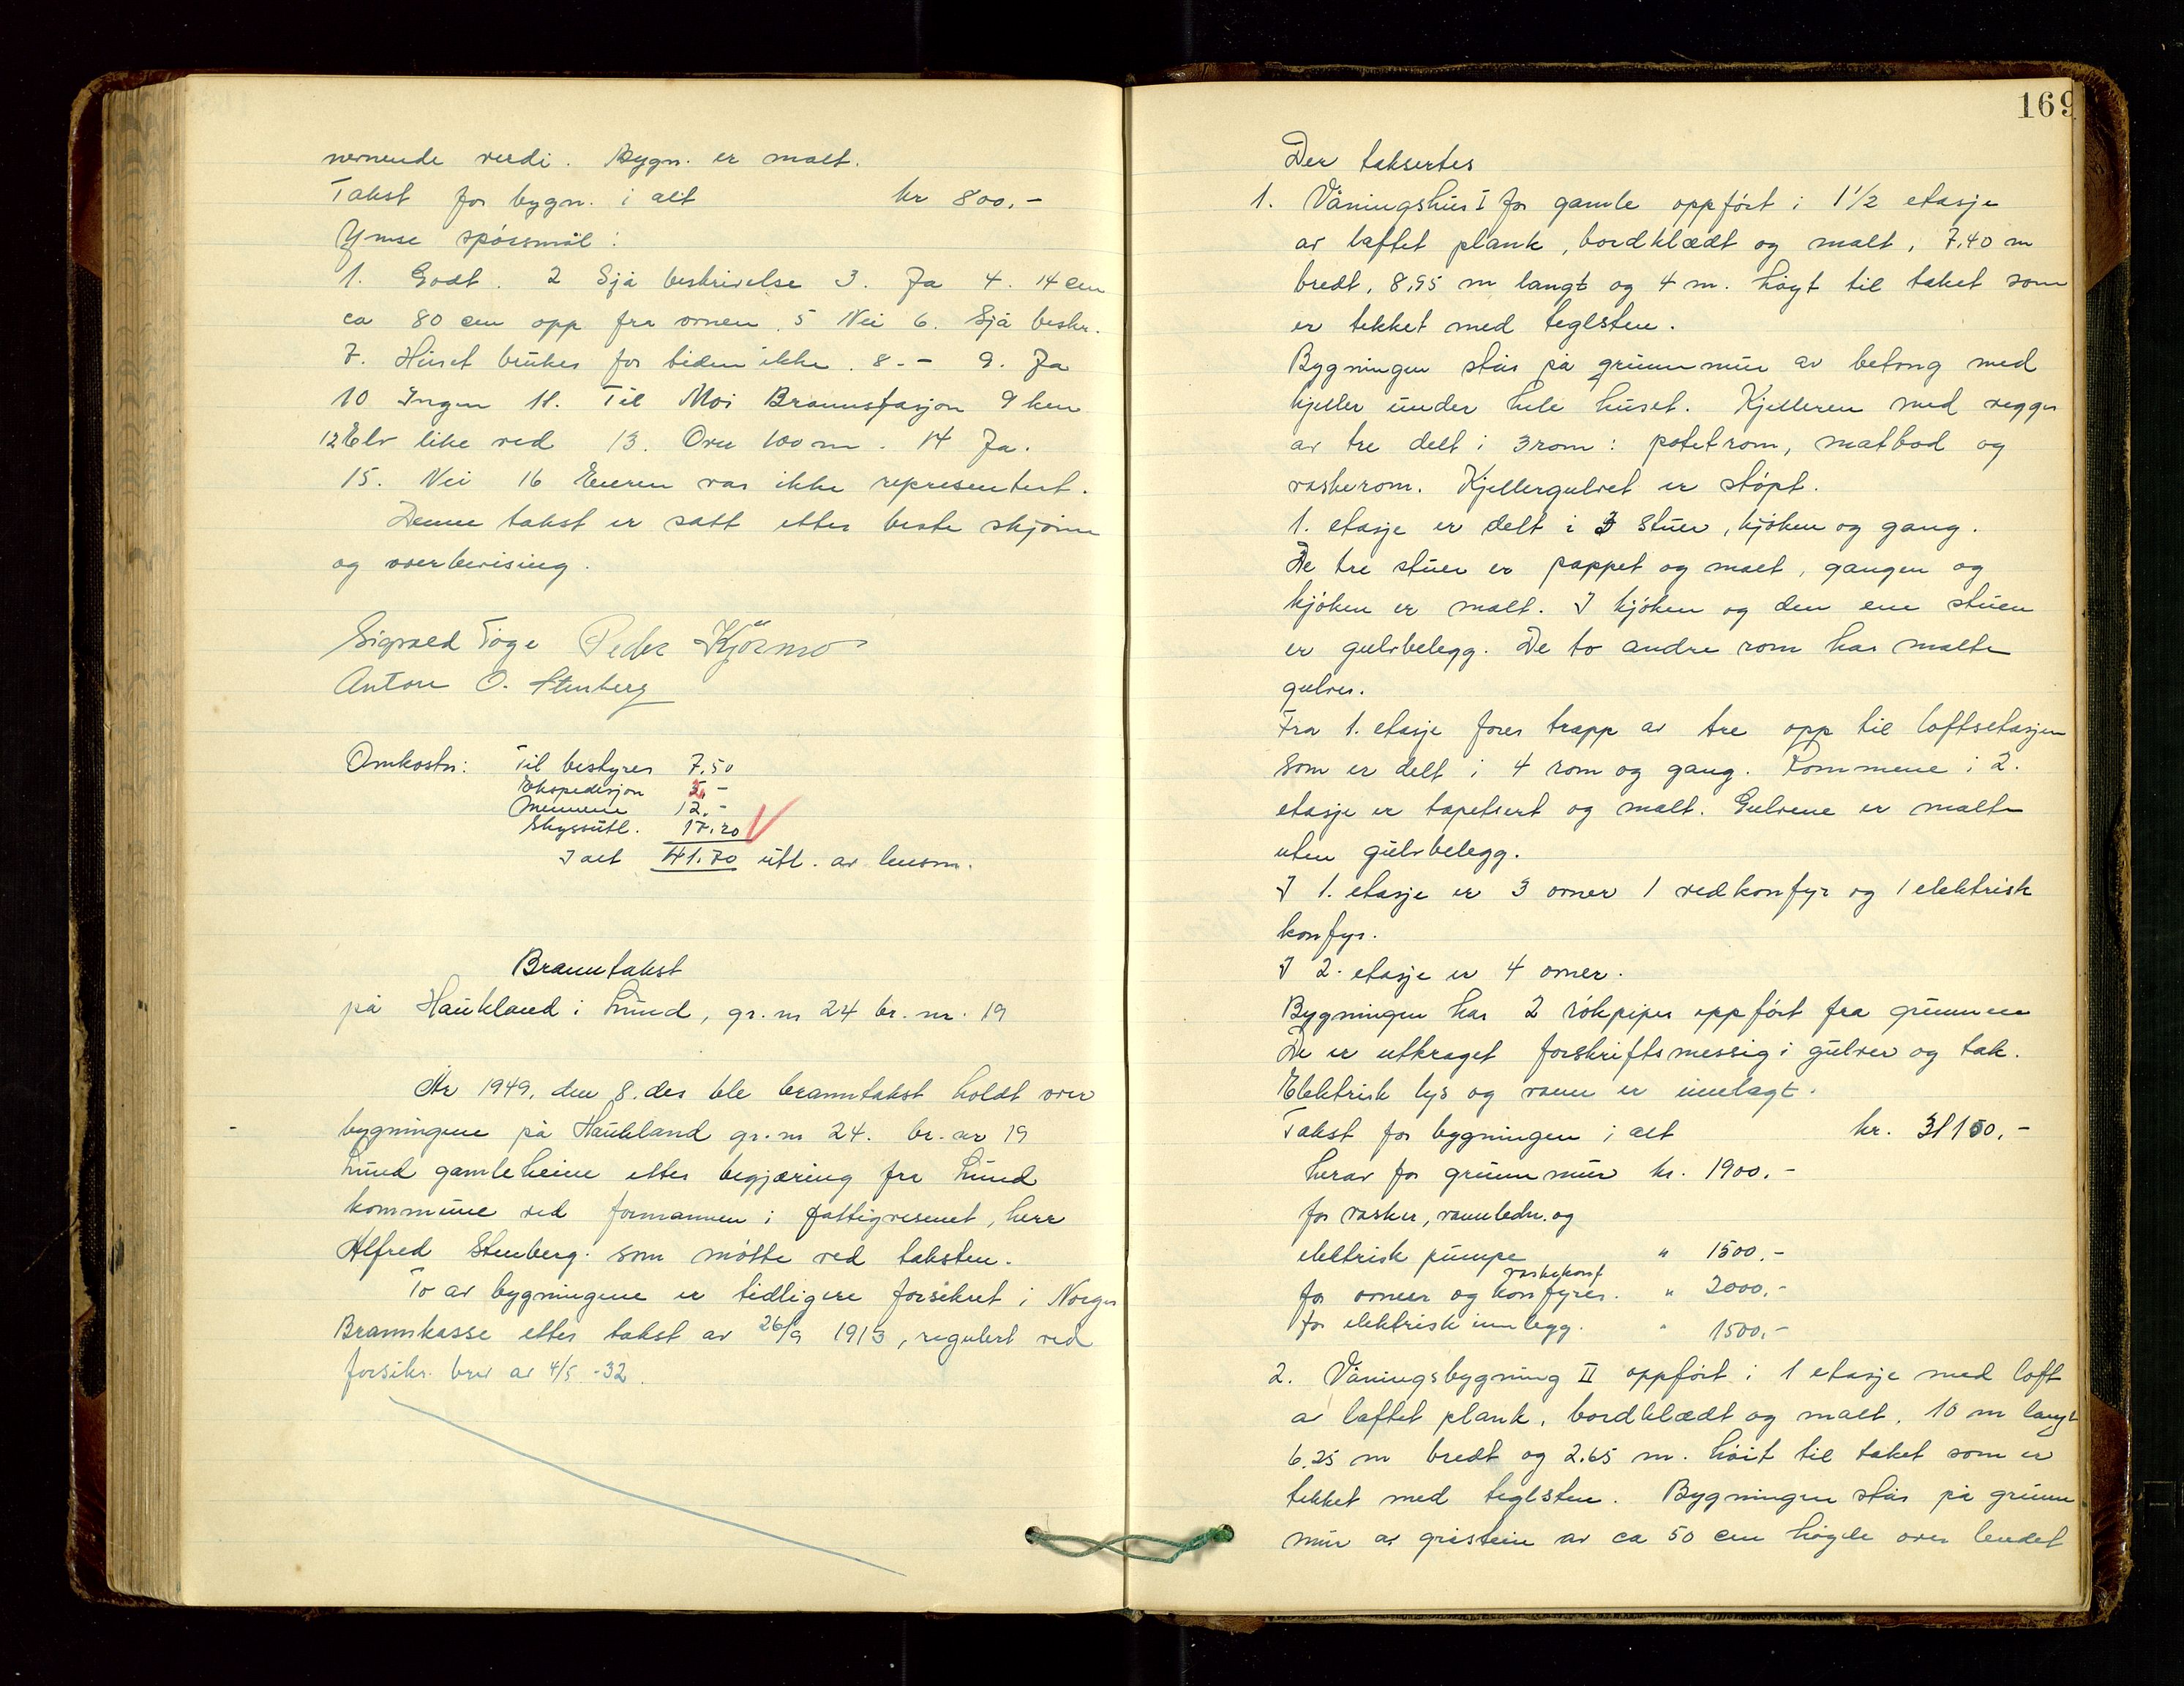 nevnende verdi. Bygn. er malt.
Takst for bygn. i alt kr 800.-
Ymse spörsmål:
1. Godt. 2 Sjå beskrivelse 3. Ja 4. 14 cm
ca 80 cm opp fra ovnen. 5 Nei 6. Sjå beskr.
7. Huset brukes for tiden ikke. 8. - 9. Ja
10 Ingen 11. Til Moi Brannstasjon 9 km
12 Elv like ved 13. Over 100 m. 14 Ja.
15. Nei 16 Eieren var ikke representert.
Denne takst er satt etter beste skjönn
og overbevising.
Sigvald Töge Peder Kjörmo
Anton O. Stenberg
Omkostn: Til bestyrer 7.50
Ekspedisjon 5.-
Mennene 12.-
Skyssutl. 17.20
I alt 41.70 utl. av lensm.
Branntakst
på Haukland i Lund, gr. nr 24 br. nr. 19
År 1949, den 8. des ble branntakst holdt over
bygningene på Haukland gr. nr 24. br. nr 19
Lund gamleheim etter begjæring fra Lund
kommune ved formannen i fattigvesenet, herr
Alfred Stenberg. som mötte ved taksten.
To av bygningene er tidligere forsikret i Norges
Brannkasse etter takst av 26/9 1913, regulert ved
forsikr. brev av 4/5 -32.
169
Der taksertes
1. Våningshus I for gamle oppfört i 1 1/2 etasje
av laftet plank, bordklædt og malt, 7,40 m
bredt, 8,95 m langt og 4 m. högt til taket som
er tekket med teglsten.
Bygningen står på grunnmur av betong med
kjeller under hele huset. Kjelleren med vegger
av tre delt i 3 rom: potetrom, matbod og
vaskerom. Kjellergulvet er stöpt.
1. etasje er delt i 3 stuer, kjöken og gang.
De tre stuer er pappet og malt, gangen og
kjöken er malt. I kjöken og den ene stuen
er gulvbelegg. De to andre rom har malte
gulver.
Fra 1. etasje förer trapp av tre opp til loftsetasjen
som er delt i 4 rom og gang. Rommene i 2.
etasje er tapetsert og malt. Gulvene er malte
uten gulvbelegg.
I 1. etasje er 3 ovner 1 vedkomfyr og 1 elektrisk
komfyr.
I 2. etasje er 4 ovner.
Bygningen har 2 rökpiper oppfört fra grunnen
De er utkraget forskriftsmessig i gulver og tak.
Elektrisk lys og vann er innlagt.
Takst for bygningen i alt kr. 31150.-
herav for grunnmur kr. 1900.-
for vasker, vannledn. og
elektrisk pumpe " 1500.-
vaskekomf
for ovner og komfyrer. " 2000.-
for elektrisk innlegg. " 1500.-
2. Våningsbygning II oppfört i 1 etasje med loft
av laftet plank, bordklædt og malt, 10 m langt
6,25 m bredt og 2.65 m. höit til taket som er
tekket med teglsten. Bygningen står på grunn
mur av gråstein av ca 50 cm högde over lendet